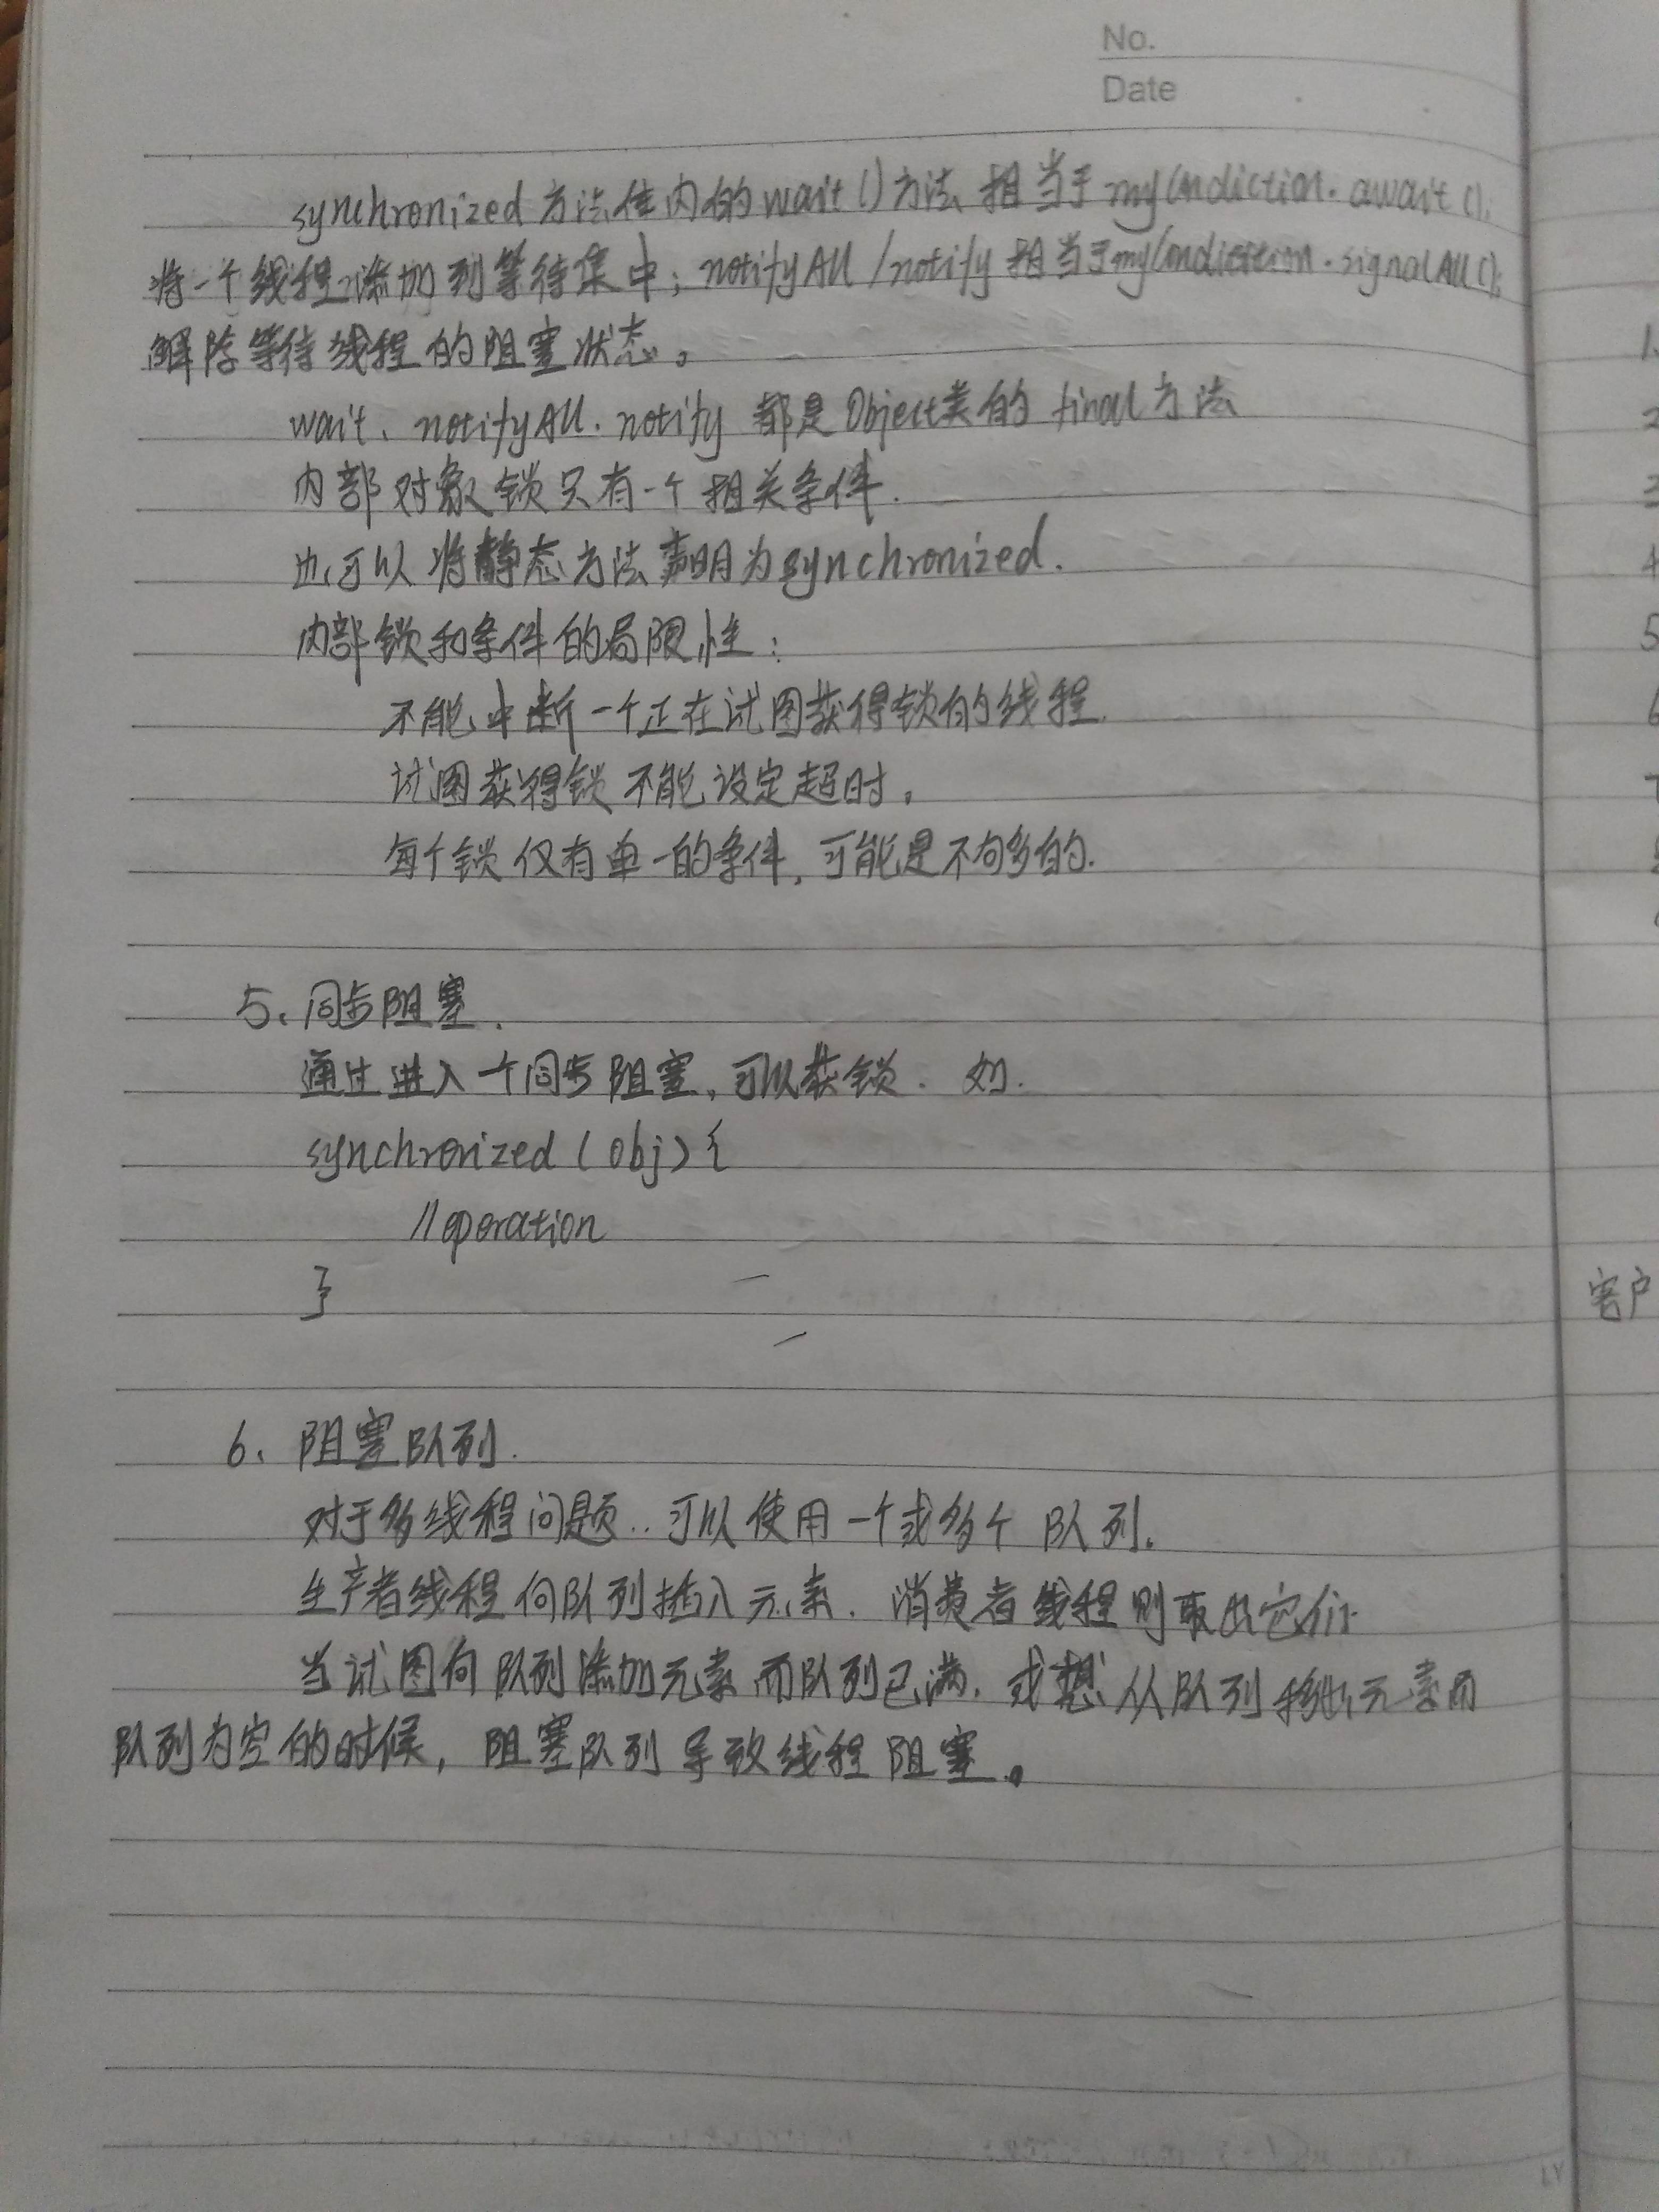 No.
Date
synchronized方法体内的wait()方法相当于myCondiction.await();
将一个线程添加到等待集中;notifyAll/notify相当于myCondiction.signalAll();
解除等待线程的阻塞状态。
wait、notifyAll、notify都是Object类的final方法
内部对象锁只有一个相关条件.
也可以将静态方法声明为synchronized.
内部锁和条件的局限性:
不能中断一个正在试图获得锁的线程.
试图获得锁不能设定超时。
每个锁仅有单一的条件,可能是不够的.
5、同步阻塞.
通过进入一个同步阻塞,可以获锁. 如.
synchronized(obj){
//operation
}
6、阻塞队列.
对于多线程问题..可以使用一个或多个队列.
生产者线程向队列插入元素.消费者线程则取出它们.
当试图向队列添加元素而队列已满.或想从队列移出元素而
队列为空的时候,阻塞队列导致线程阻塞。
1.
2
3
4
5
6
客户